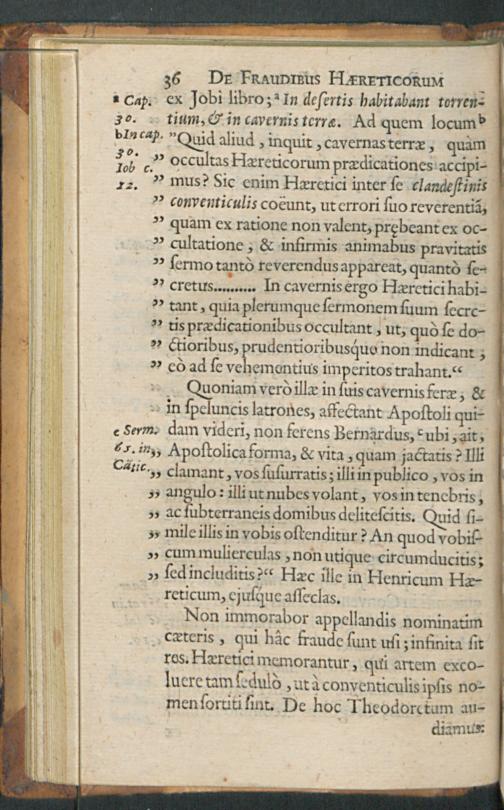 36 DE FRAUDIBUS HÆRETICORUM
ᵃ Cap. 30.
ᵇ In cap. 30. Iob c. 12.
ex Jobi libro; ᵃ In desertis habitabant torren-
tium, & in cavernis terræ. Ad quem locum ᵇ
"Quid aliud, inquit, cavernas terræ, quàm
" occultas Hæreticorum prædicationes accipi-
" mus? Sic enim Hæretici inter se clandestinis
" conventiculis coëunt, ut errori suo reverentiã,
" quam ex ratione non valent, prębeant ex oc-
" cultatione, & infirmis animabus pravitatis
" sermo tantò reverendus appareat, quantò se-
" cretus.......... In cavernis ergo Hæretici habi-
" tant, quia plerumque sermonem suum secre-
" tis prædicationibus occultant, ut, quò se do-
" ctioribus, prudentioribusque non indicant,
" eò ad se vehementius imperitos trahant."
Quoniam verò illæ in suis cavernis feræ, &
in speluncis latrones, affectant Apostoli qui-
c Serm. 65. in Cãtic.
dam videri, non ferens Bernardus, ᶜ ubi, ait,
" Apostolica forma, & vita, quam jactatis? Illi
" clamant, vos susurratis; illi in publico, vos in
" angulo: illi ut nubes volant, vos in tenebris,
" ac subterraneis domibus delitescitis. Quid si-
" mile illis in vobis ostenditur? An quod vobis-
" cum mulierculas, non utique circumducitis;
" sed includitis?" Hæc ille in Henricum Hæ-
reticum, ejusque asseclas.
Non immorabor appellandis nominatim
cæteris, qui hâc fraude sunt usi; infinita sit
res. Hæretici memorantur, qui artem exco-
luere tam sedulò, ut à conventiculis ipsis no-
men sortiti sint. De hoc Theodoretum au-
diamus: